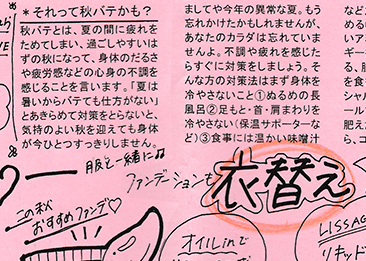 *それって秋バテかも?
秋バテとは、夏の間に疲れを
ためてしまい、過ごしやすいは
ずの秋になって、身体のだるさ
や疲労感などの心身の不調を
感じることを言います。「夏は
暑いからバテても仕方がない」
とあきらめて対策をとらないと、
気持のよい秋を迎えても身体
が今ひとつすっきりしません。
ましてや今年の異常な夏。もう
忘れかけたかもしれませんが、
あなたのカラダは忘れていませ
んよ。不調や疲れを感じた
らすぐに対策をしましょう。そ
んな方の対策法はまず身体を
冷やさないこと①ぬるめの長
風呂②足もと・首・肩まわりを
冷やさない(保温サポーターな
ど)③食事には温かい味噌汁
服と一緒に♫
ファンデーションも
衣替え
この秋
おすすめファンデ♡
オイルinで
LISSAG
リキッド